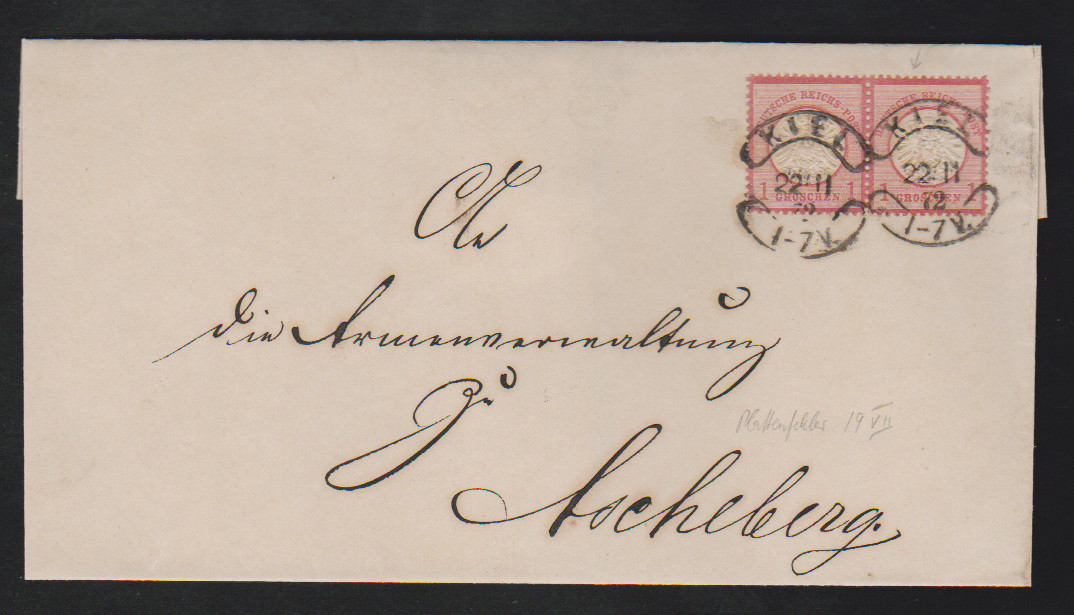 DEUTSCHE REICHS-POST DEUTSCHE REICHS-POST
KIEL KIEL
22 11 22 11
72 72
1-7 V. 1-7 V.
1 GROSCHEN 1 1 GROSCHEN 1
An
die Armenverwaltung
zu
Ascheberg.
Plattenfehler 19 VII